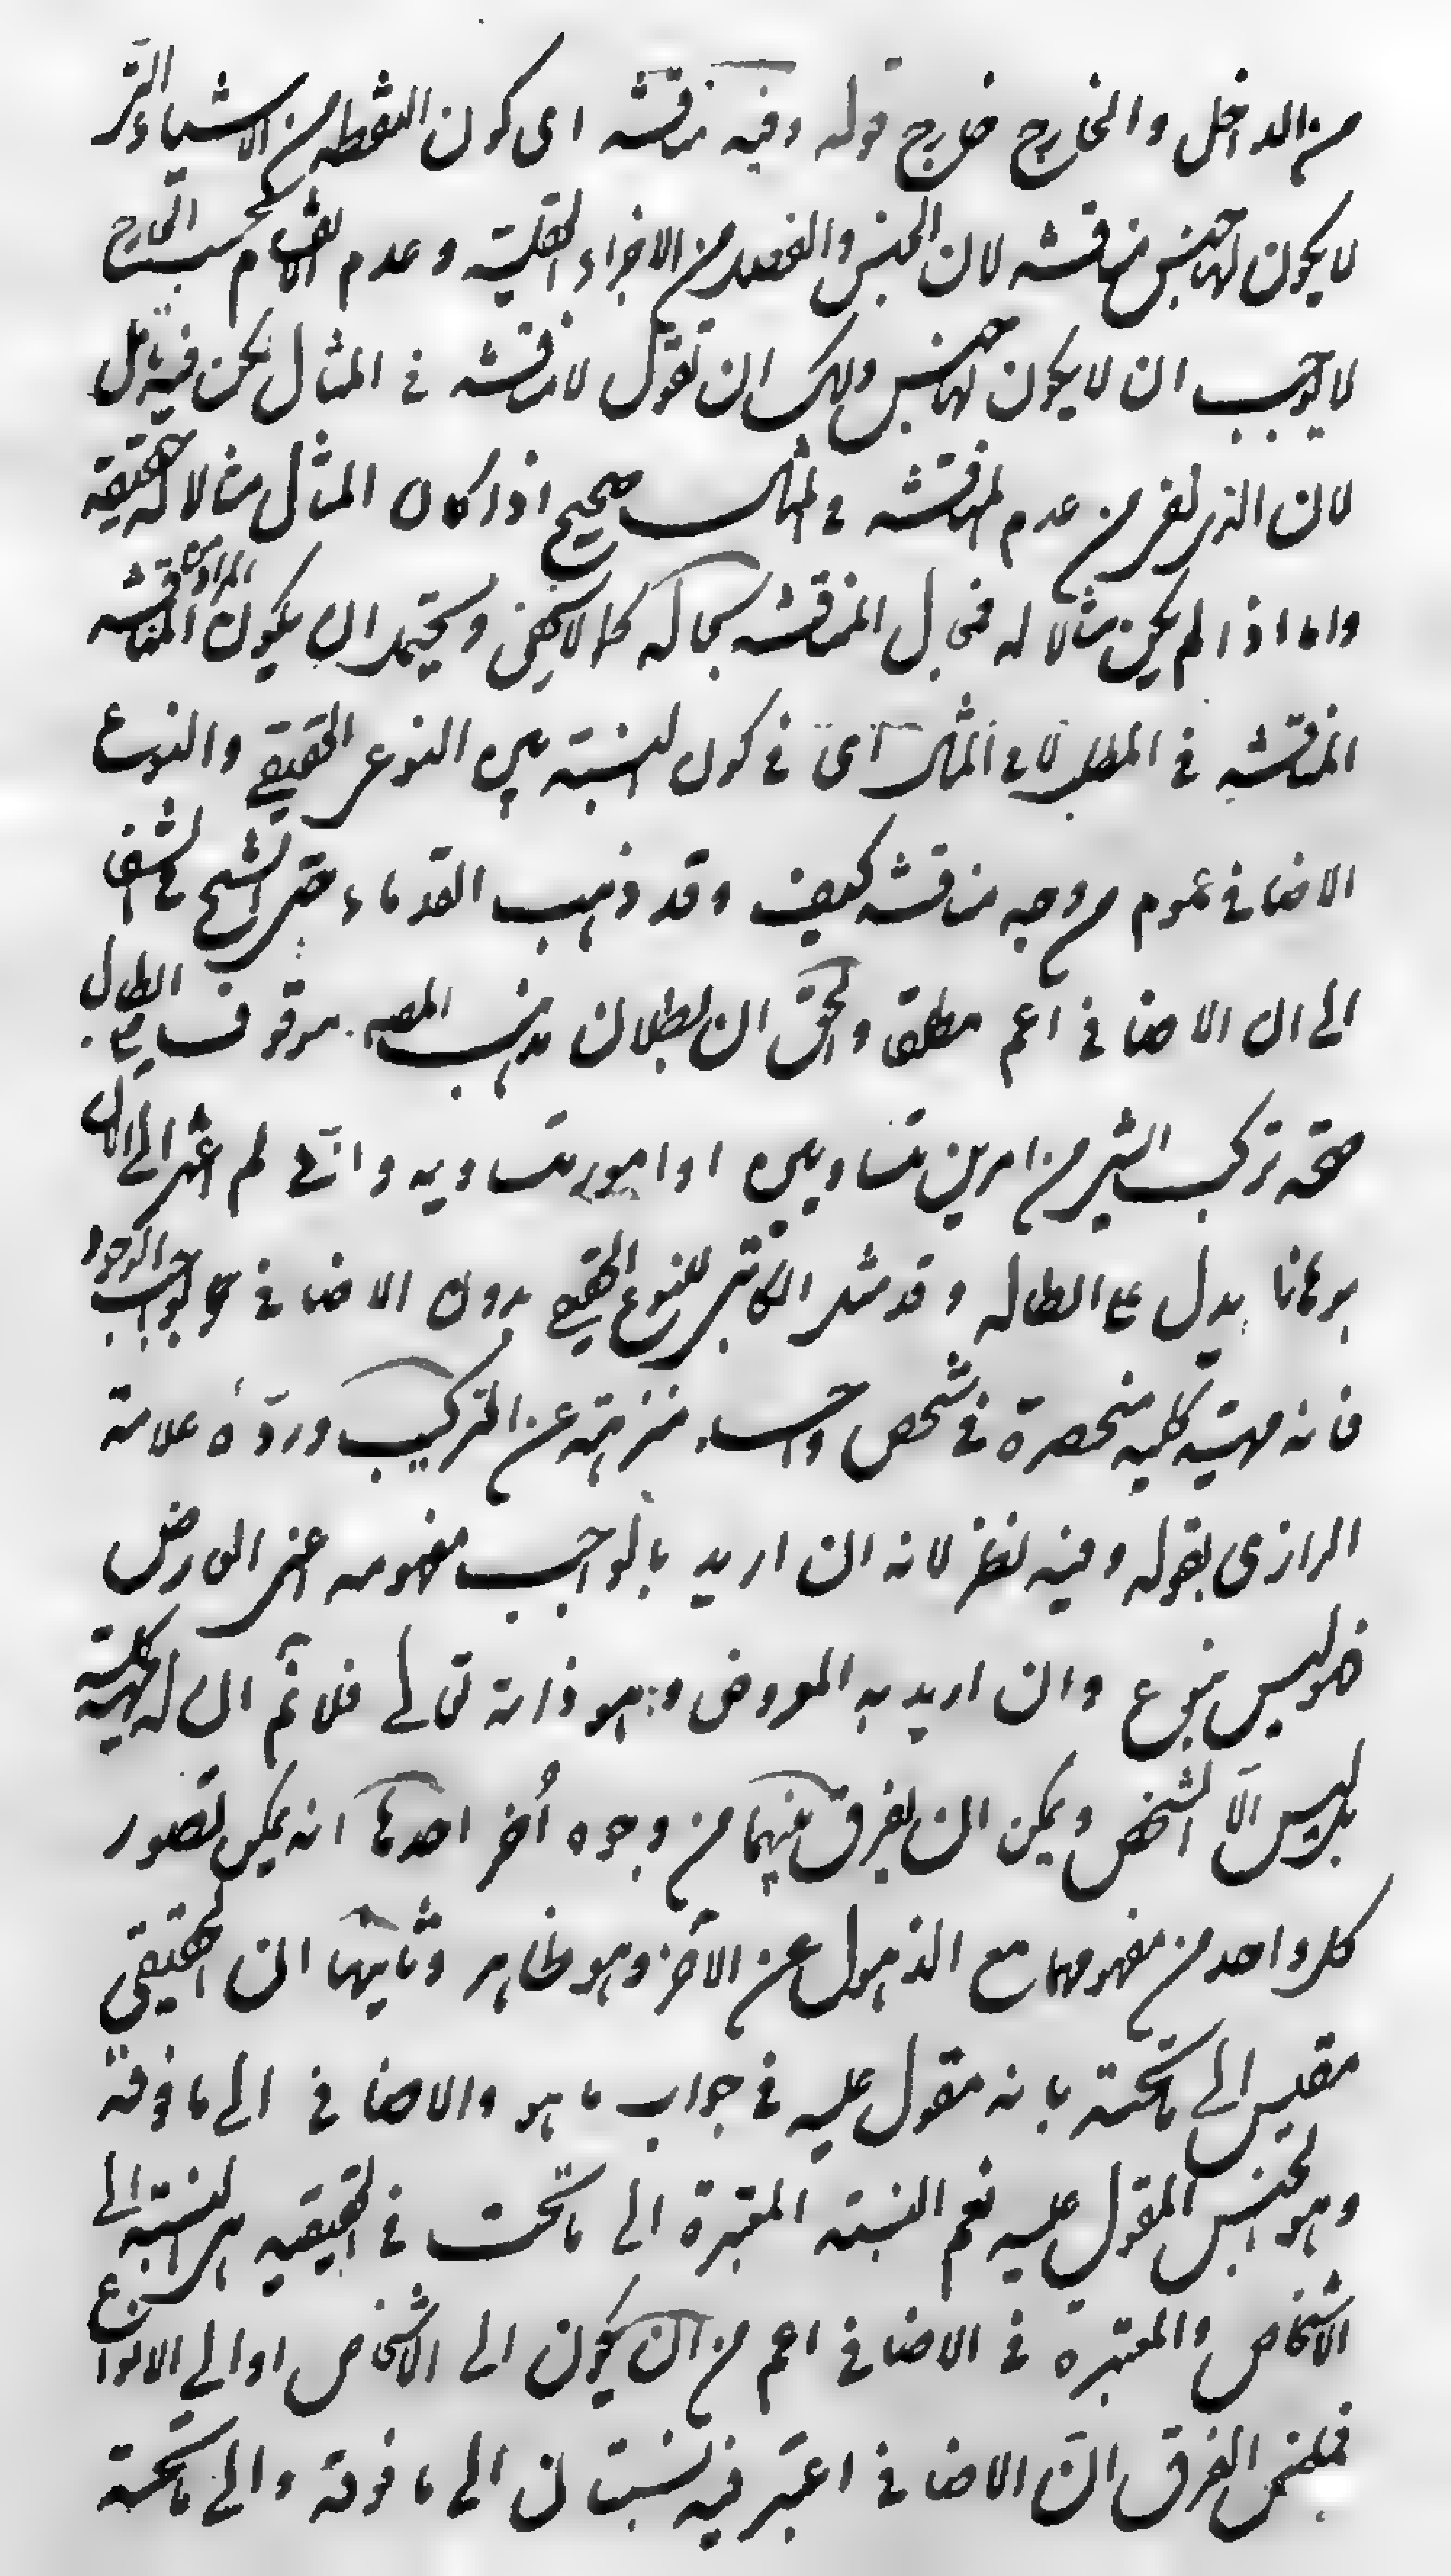 من الداخل والخارج خارج قوله وفيه مناقشة اى كون النقطة من الاشياء التى
لا يكون لها جنس مناقشة لان الجنس والفصل من الاجزاء العقلية وعدم انقسام بحسب الخارج
لا يوجب ان لا يكون لها جنس ولك ان تقول لا مناقشة فى المثال لكن فيه تامل
لان الذى نفر من عدم المناقشة فى المثال صحيح اذا كان المثال مثالا له حقيقة
واما اذا لم يكن مثالا له فمجال المناقشة بحاله كما لا يخفى ويحتمل ان يكون المراد من المناقشة
المناقشة فى المطلب لا فى المثال اى فى كون النسبة بين النوع الحقيقى والنوع
الاضافى عموم من وجه مناقشة كيف وقد ذهب القدماء حتى الشيخ فى الشفا
الى ان الاضافى اعم مطلقا والحق ان بطلان مذهب المصه موقوف على ابطال
صحة تركب الشى من امرين متساويين او امور متساوية وانى لم اعثر الى الان
برهانا يدل على ابطاله وقد مثل الكاتبى للنوع الحقيقى بدون الاضافى بواجب الوجود
فانه مهية كلية منحصرة فى شخص واحد منزهة عن التركيب وردّه علامة
الرازى بقوله وفيه نظر لانه ان اريد بالواجب مفهومه اعنى العارض
فهو ليس بنوع وان اريد به المعروض وهو ذاته تعالى فلا نم ان له مهية كلية
بل ليس الّا الشخص ويمكن ان يفرق بينهما من وجوه اُخر احدها انه يمكن تصور
كل واحد من مفهومها مع الذهول عن الآخر وهو ظاهر وثانيها ان الحقيقى
مقيس الى ما تحته بانه مقول عليه فى جواب ما هو والاضافى الى ما فوقه
وهو الجنس المقول عليه نعم النسبة المعتبرة الى ما تحت فى الحقيقية هى النسبة الى
الاشخاص والمعتبرة فى الاضافى اعم من ان يكون الى الاشخاص او الى الانواع
فملخص الفرق انّ الاضافى اعتبر فيه نسبتان الى ما فوقه والى ما تحته